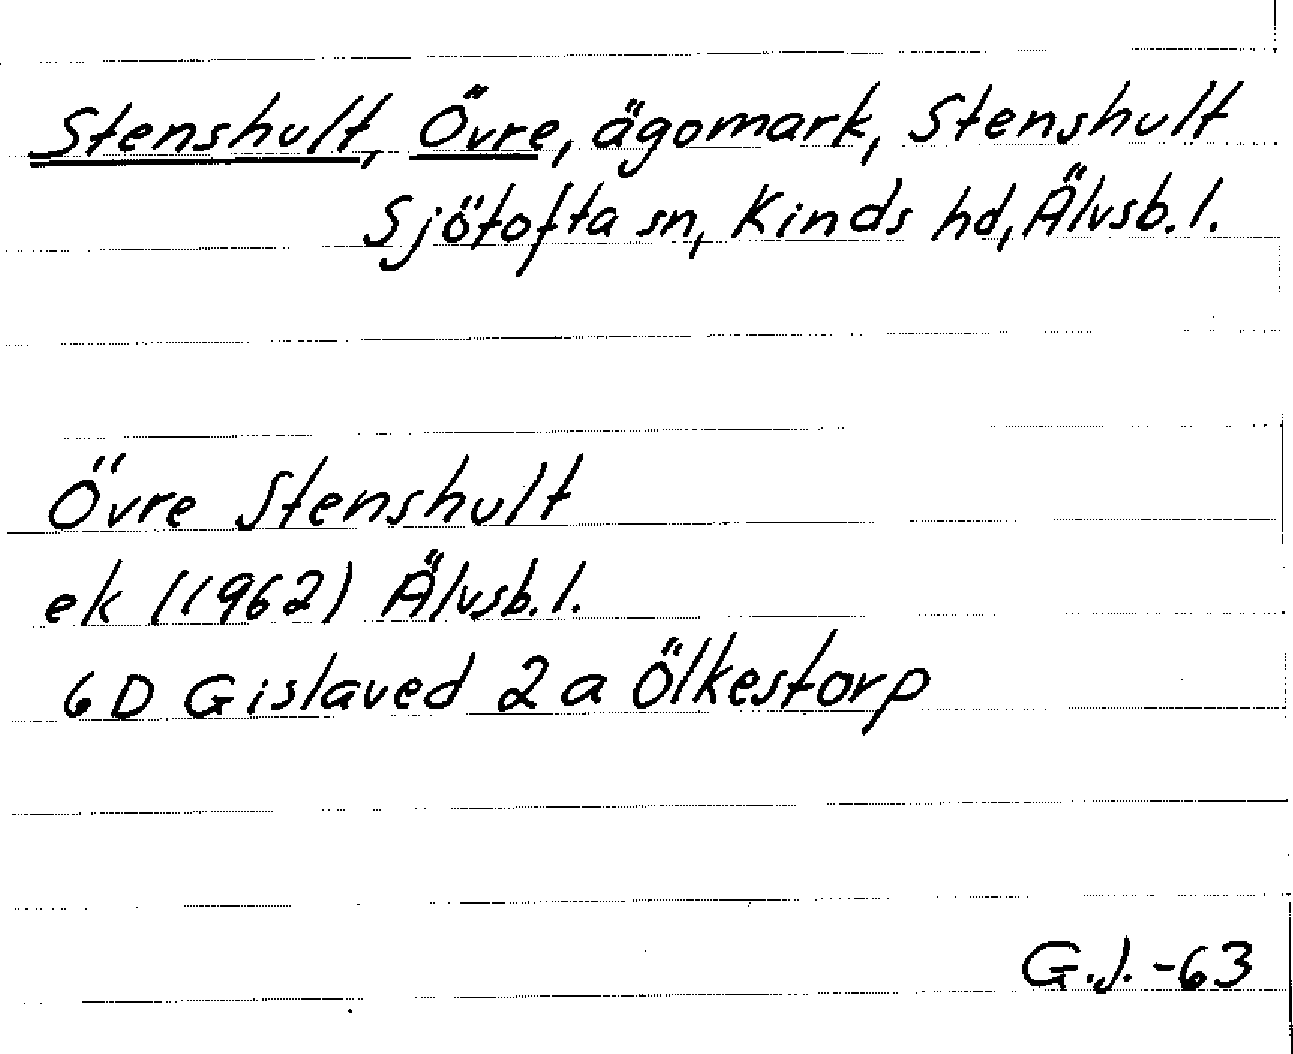 Stenshult, Övre, ägomark, Stenshult
Sjötofta sn, Kinds hd, Älvsb. l.
Övre Stenshult
ek (1962) Älvsb. l.
6D Gislaved 2a Ölkestorp
G.J. -63